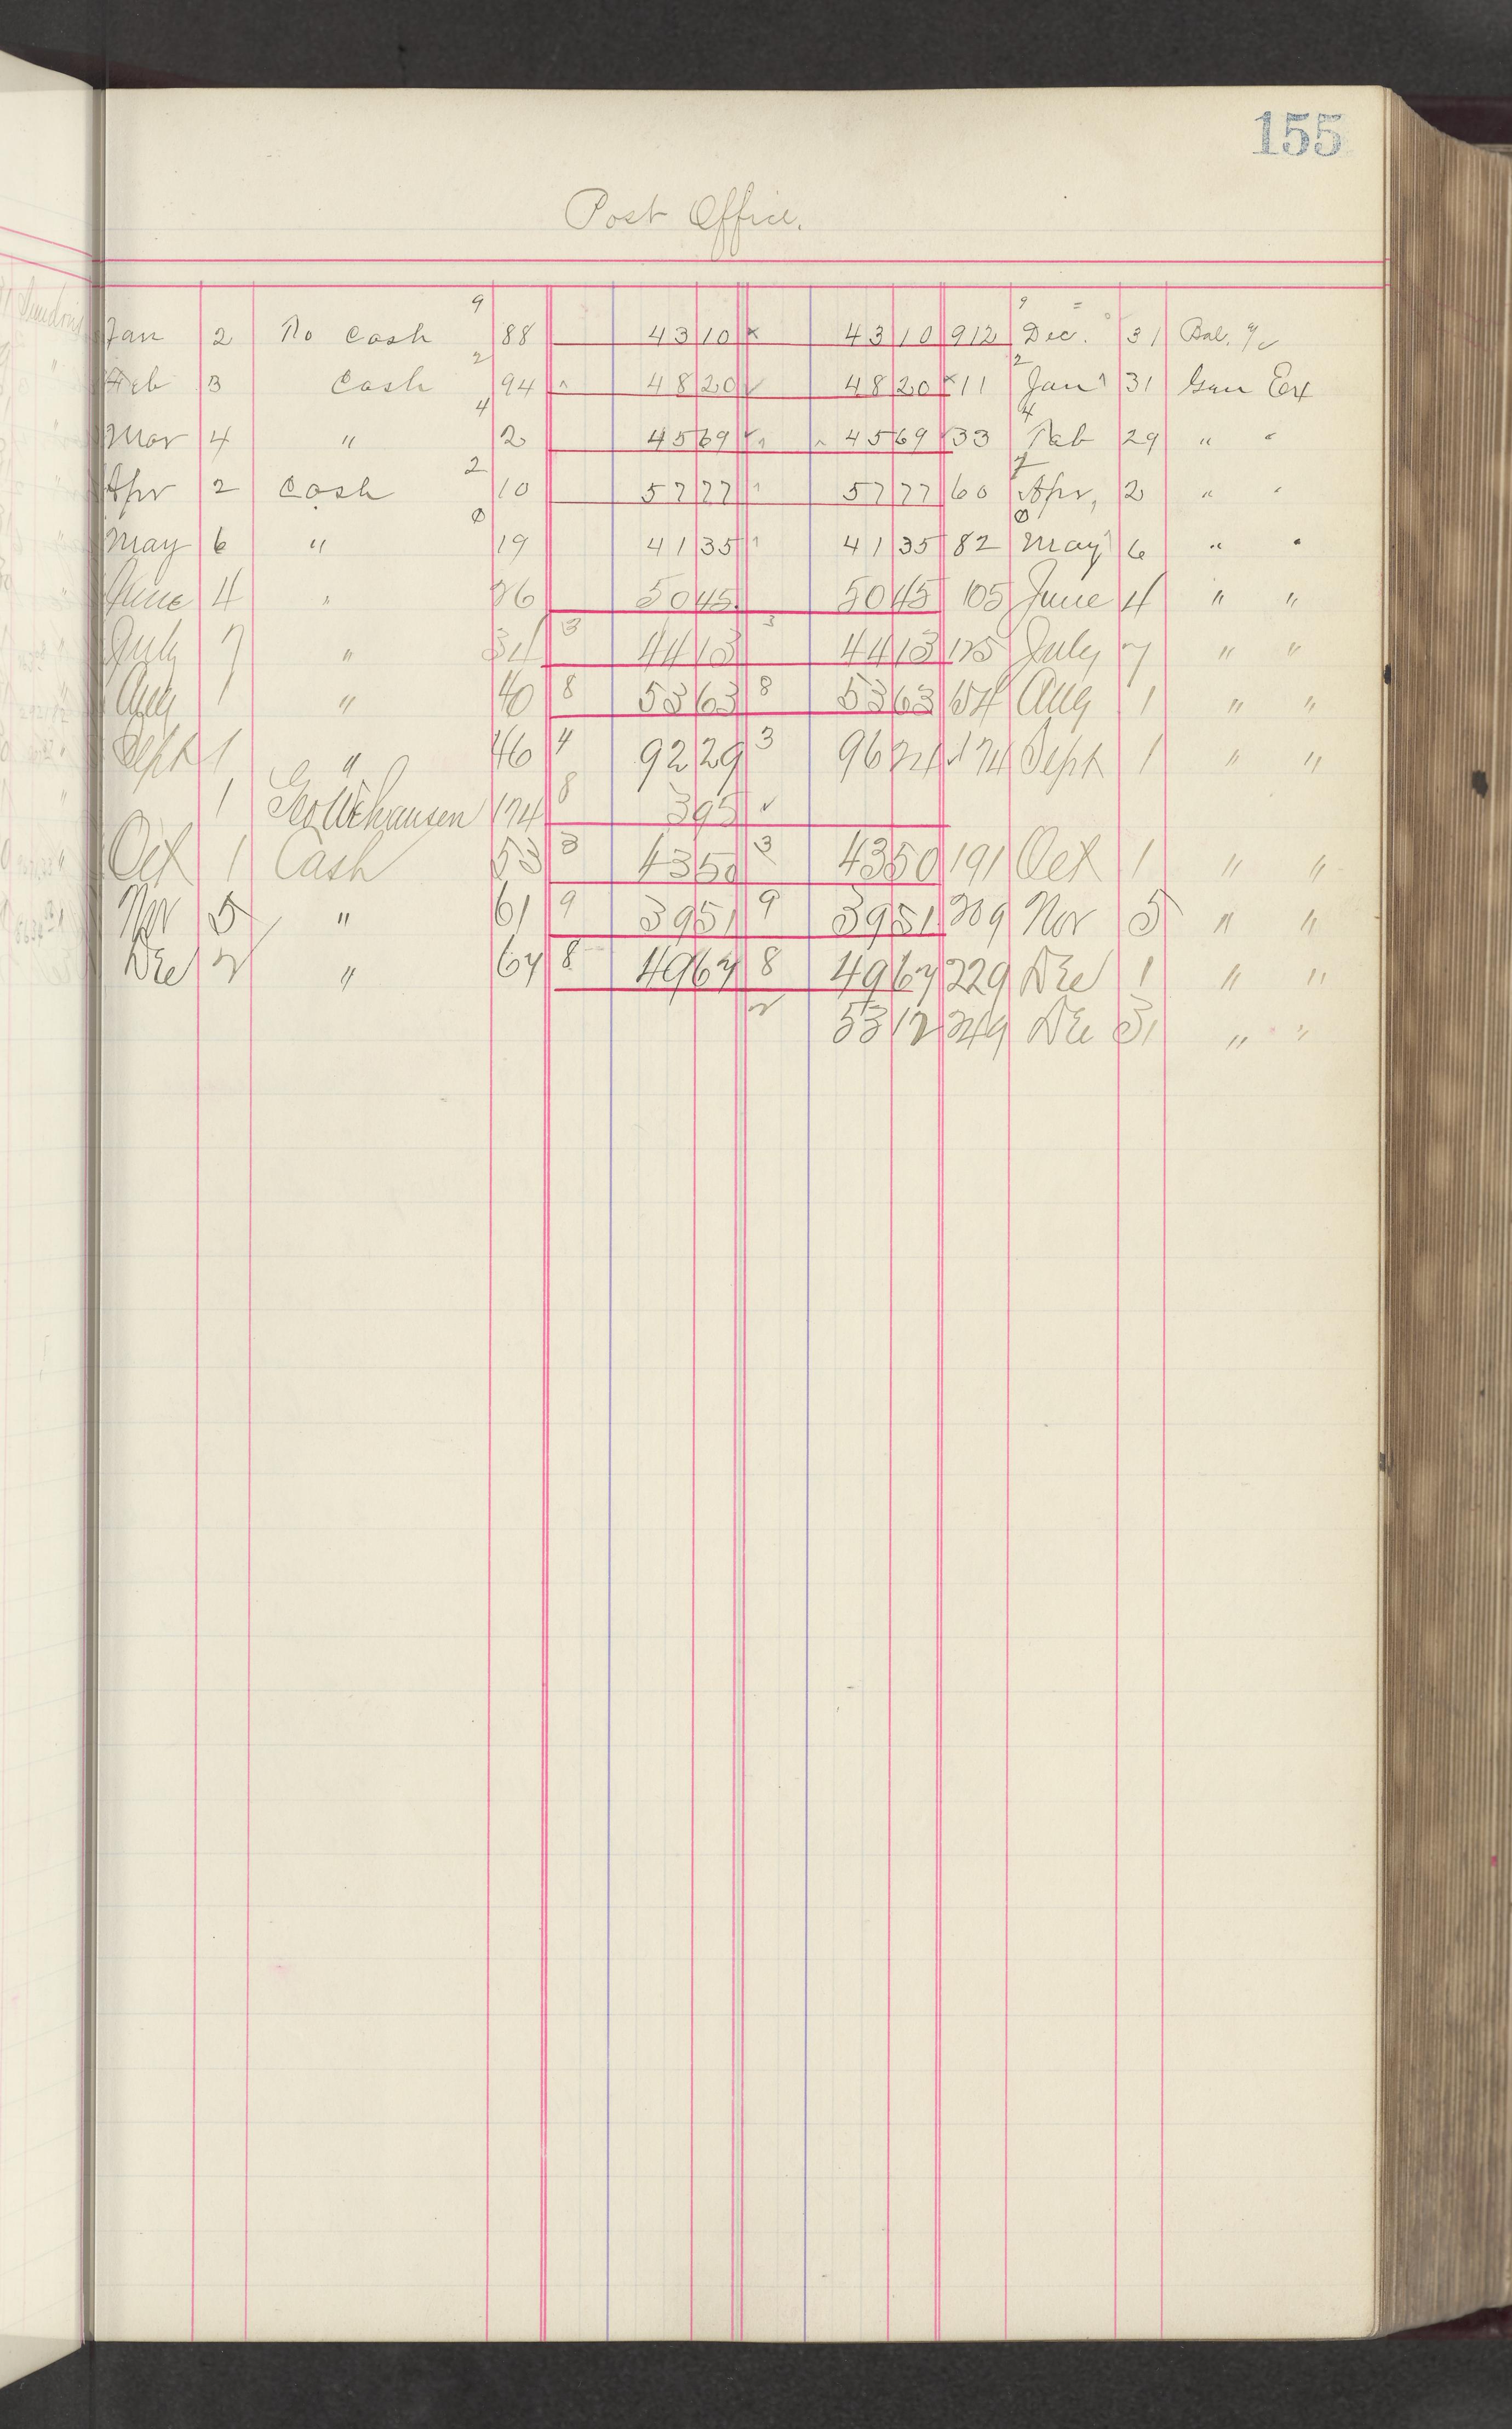 155
Post Office.
9 9
Jan 2 To Cash 88 43 10 43 10 912 Dec. 31 Bal. a/c
2 2
Feb 3 Cash 94 48 20 48 20 11 Jan 31 Gen Ex
4 4
Mar 4 " 2 45 69 45 69 33 Feb 29 " "
2 2
Apr 2 Cash 10 57 77 57 77 60 Apr, 2 " "
0 0
May 6 " 19 41 35 41 35 82 May 6 " "
June 4 " 26 50 45 50 45 105 June 4 " "
July 7 " 34 3 44 13 3 44 13 125 July 7 " "
Aug 1 " 40 8 53 63 8 53 63 154 Aug 1 " "
Sept 1 " 46 4 92 29 3 96 24 174 Sept 1 " "
1 Geo Wehausen 174 8 3 95 ✓
Oct 1 Cash 53 3 43 50 3 43 50 191 Oct 1 " "
Nov 5 " 61 9 39 51 9 39 51 209 Nov 5 " "
Dec 2 " 67 8 49 67 8 49 67 229 Dec 1 " "
2 53 12 249 Dec 31 " "